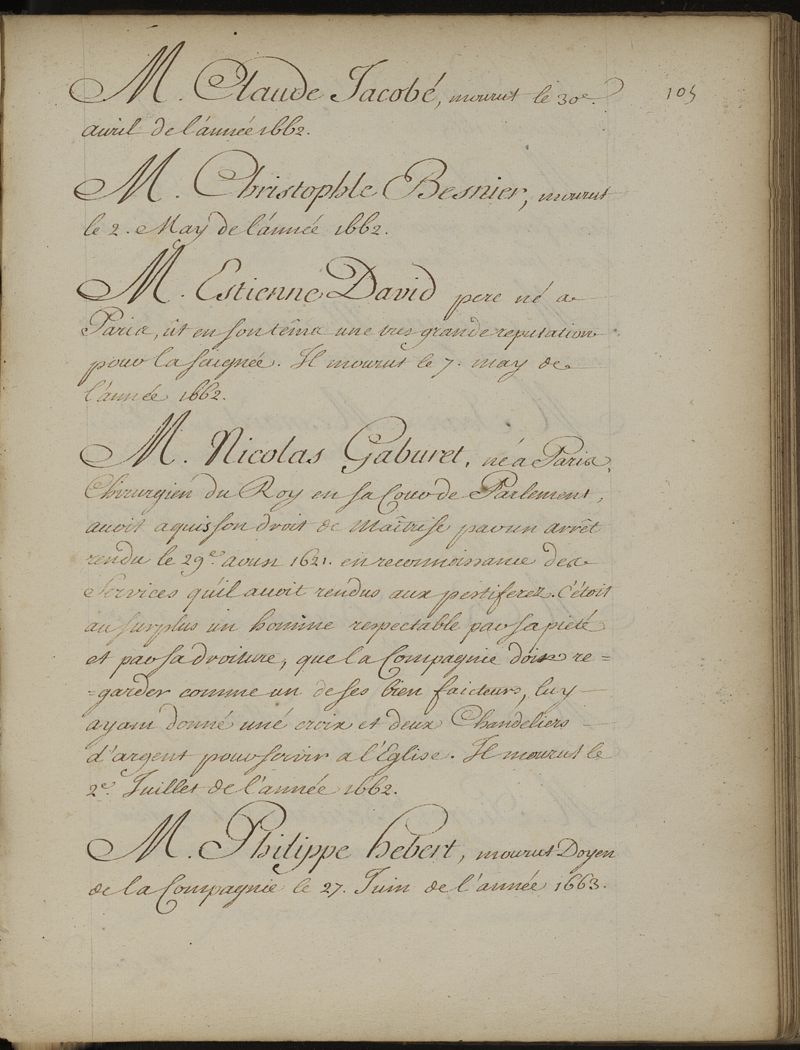 M. Claude Jacobé, mourut le 30e.
105
avril de l'année 1662.
M. Christophle Besnier, mourut
le 2. May de l'année 1662.
M. Estienne David pere né a
Paris, ût en son têms une tres grande reputation
pour la saignée. Il mourut le 7. may de
l'année 1662.
M. Nicolas Gaburet, né a Paris,
Chirurgien du Roy en sa Cour de Parlement,
avoit aquis son droit de Maîtrise par un arrêt
rendu le 29e. aoust 1621. en reconnoissance des
Services qu'il avoit rendus aux pestiferez. C'étoit
au surplus un homme respectable par sa pieté
et par sa droiture, que la Compagnie doit re=
=garder comme un de ses bien faicteurs, luy
ayant donné une croix et deux Chandeliers
d'argent pour servir a l'Eglise. Il mourut le
2e. Juillet de l'année 1662.
M. Philippe hebert, mourut Doyen
de la Compagnie le 27. Juin de l'année 1663.